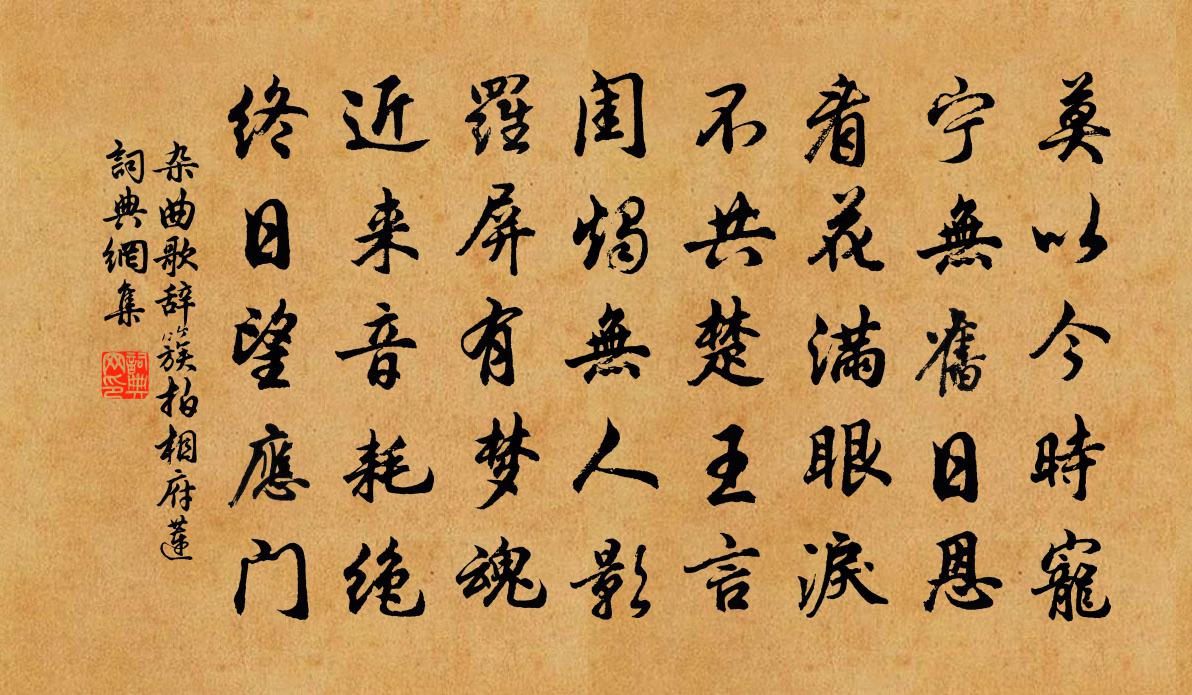 莫以今時寵
宁無舊日恩
看花滿眼淚
不共楚王言
閨燭無人影
羅屏有梦魂
近来音耗絶
终日望應门
杂曲歌辞簇拍相府蓮
詞典網集
詞典网印